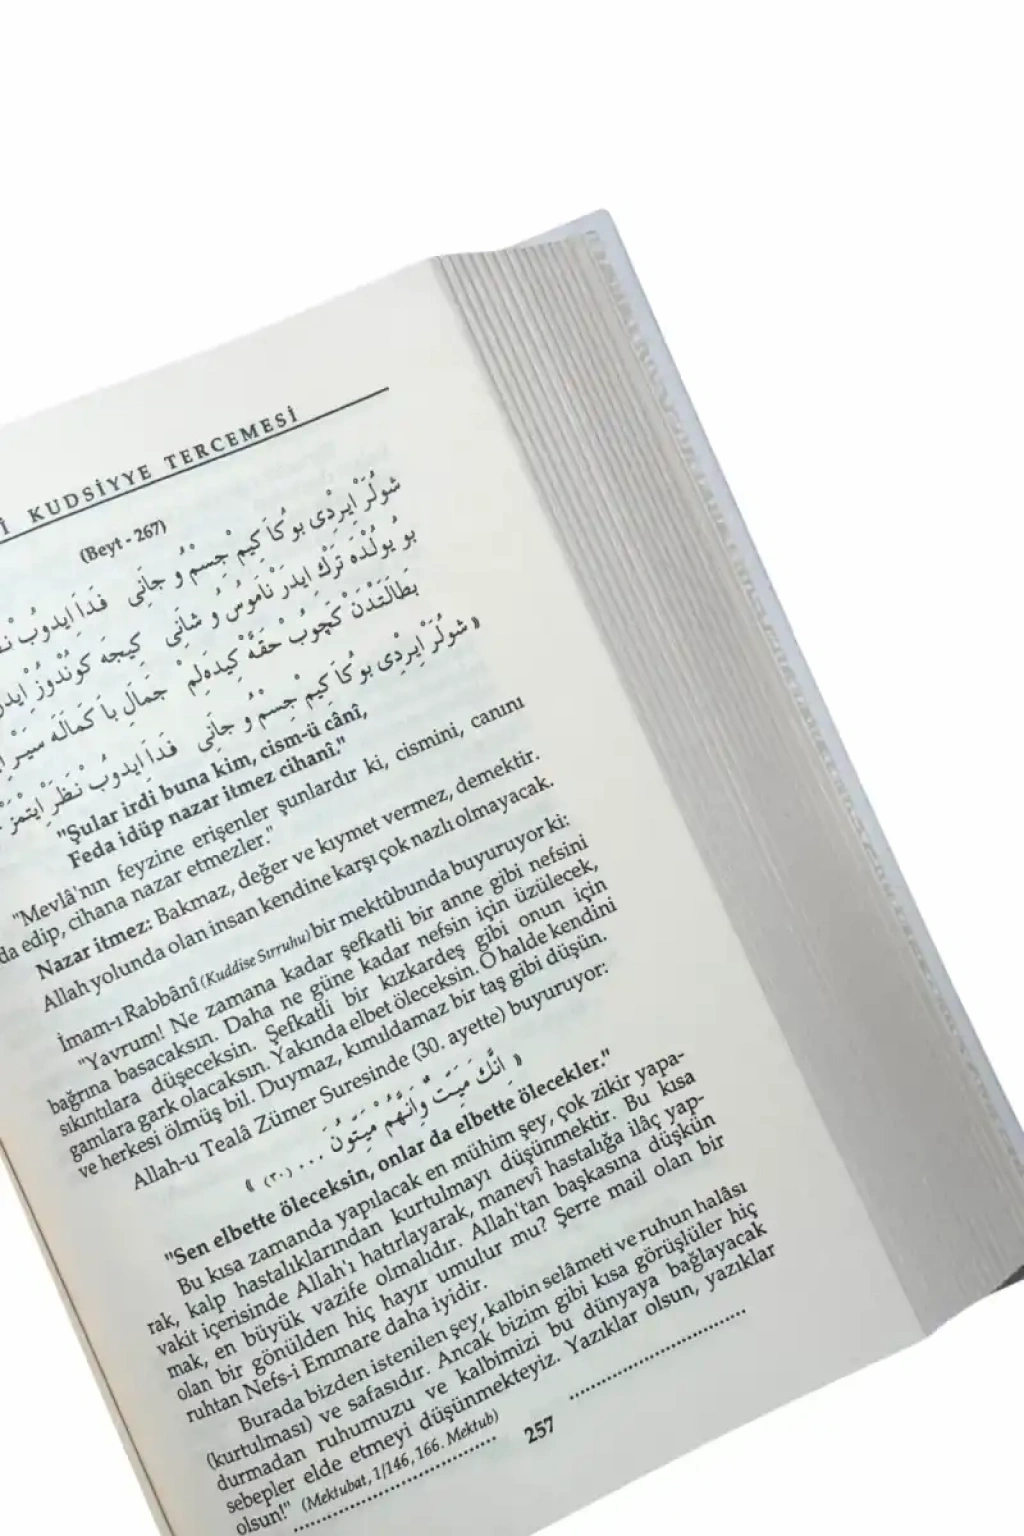 İ KUDSİYYE TERCEMESİ
(Beyt - 267)
شولَرْ اِيرْدِى بو كَا كِيمْ جِسْمُ و جانِى فَداَ اِيدوُبْ
بو يولْدَه تَرْكِ ايدَرْ نَامُوسُ و شانِى كِيجَه كوُنْدوُزْ
بَطَالَتْدَنْ كَچوُبْ حَقَّه كِيدَه‌لِمْ جَمالِ با كَمَالَه
«شولَرْ اِيرْدِى بو كَا كِيمْ جِسْمُ و جانِى فَداَ ايدوُبْ نَظَرْ اِيتْمَزْ
"Şular irdi buna kim, cism-ü cânî,
Feda idüp nazar itmez cihanî."
"Mevlâ'nın feyzine erişenler şunlardır ki, cismini, canını
da edip, cihana nazar etmezler."
Nazar itmez: Bakmaz, değer ve kıymet vermez, demektir.
Allah yolunda olan insan kendine karşı çok nazlı olmayacak.
İmam-ı Rabbânî (Kuddise Sırruhu) bir mektûbunda buyuruyor ki:
"Yavrum! Ne zamana kadar şefkatli bir anne gibi nefsini
bağrına basacaksın. Daha ne güne kadar nefsin için üzülecek,
sıkıntılara düşeceksin. Şefkatli bir kızkardeş gibi onun için
gamlara gark olacaksın. Yakında elbet öleceksin. O halde kendini
ve herkesi ölmüş bil. Duymaz, kımıldamaz bir taş gibi düşün.
Allah-u Tealâ Zümer Suresinde (30. ayette) buyuruyor:
« اِنَّكَ مَيِّتٌ وَاِنَّهُمْ مَيِّتوُنَ ... (٣٠) »
"Sen elbette öleceksin, onlar da elbette ölecekler."
Bu kısa zamanda yapılacak en mühim şey, çok zikir yapa-
rak, kalp hastalıklarından kurtulmayı düşünmektir. Bu kısa
vakit içerisinde Allah'ı hatırlayarak, manevî hastalığa ilâç yap-
mak, en büyük vazife olmalıdır. Allah'tan başkasına düşkün
olan bir gönülden hiç hayır umulur mu? Şerre mail olan bir
ruhtan Nefs-i Emmare daha iyidir.
Burada bizden istenilen şey, kalbin selâmeti ve ruhun halâsı
(kurtulması) ve safasıdır. Ancak bizim gibi kısa görüşlüler hiç
durmadan ruhumuzu ve kalbimizi bu dünyaya bağlayacak
sebepler elde etmeyi düşünmekteyiz. Yazıklar olsun, yazıklar
olsun!" (Mektubat, 1/146, 166. Mektub)
257